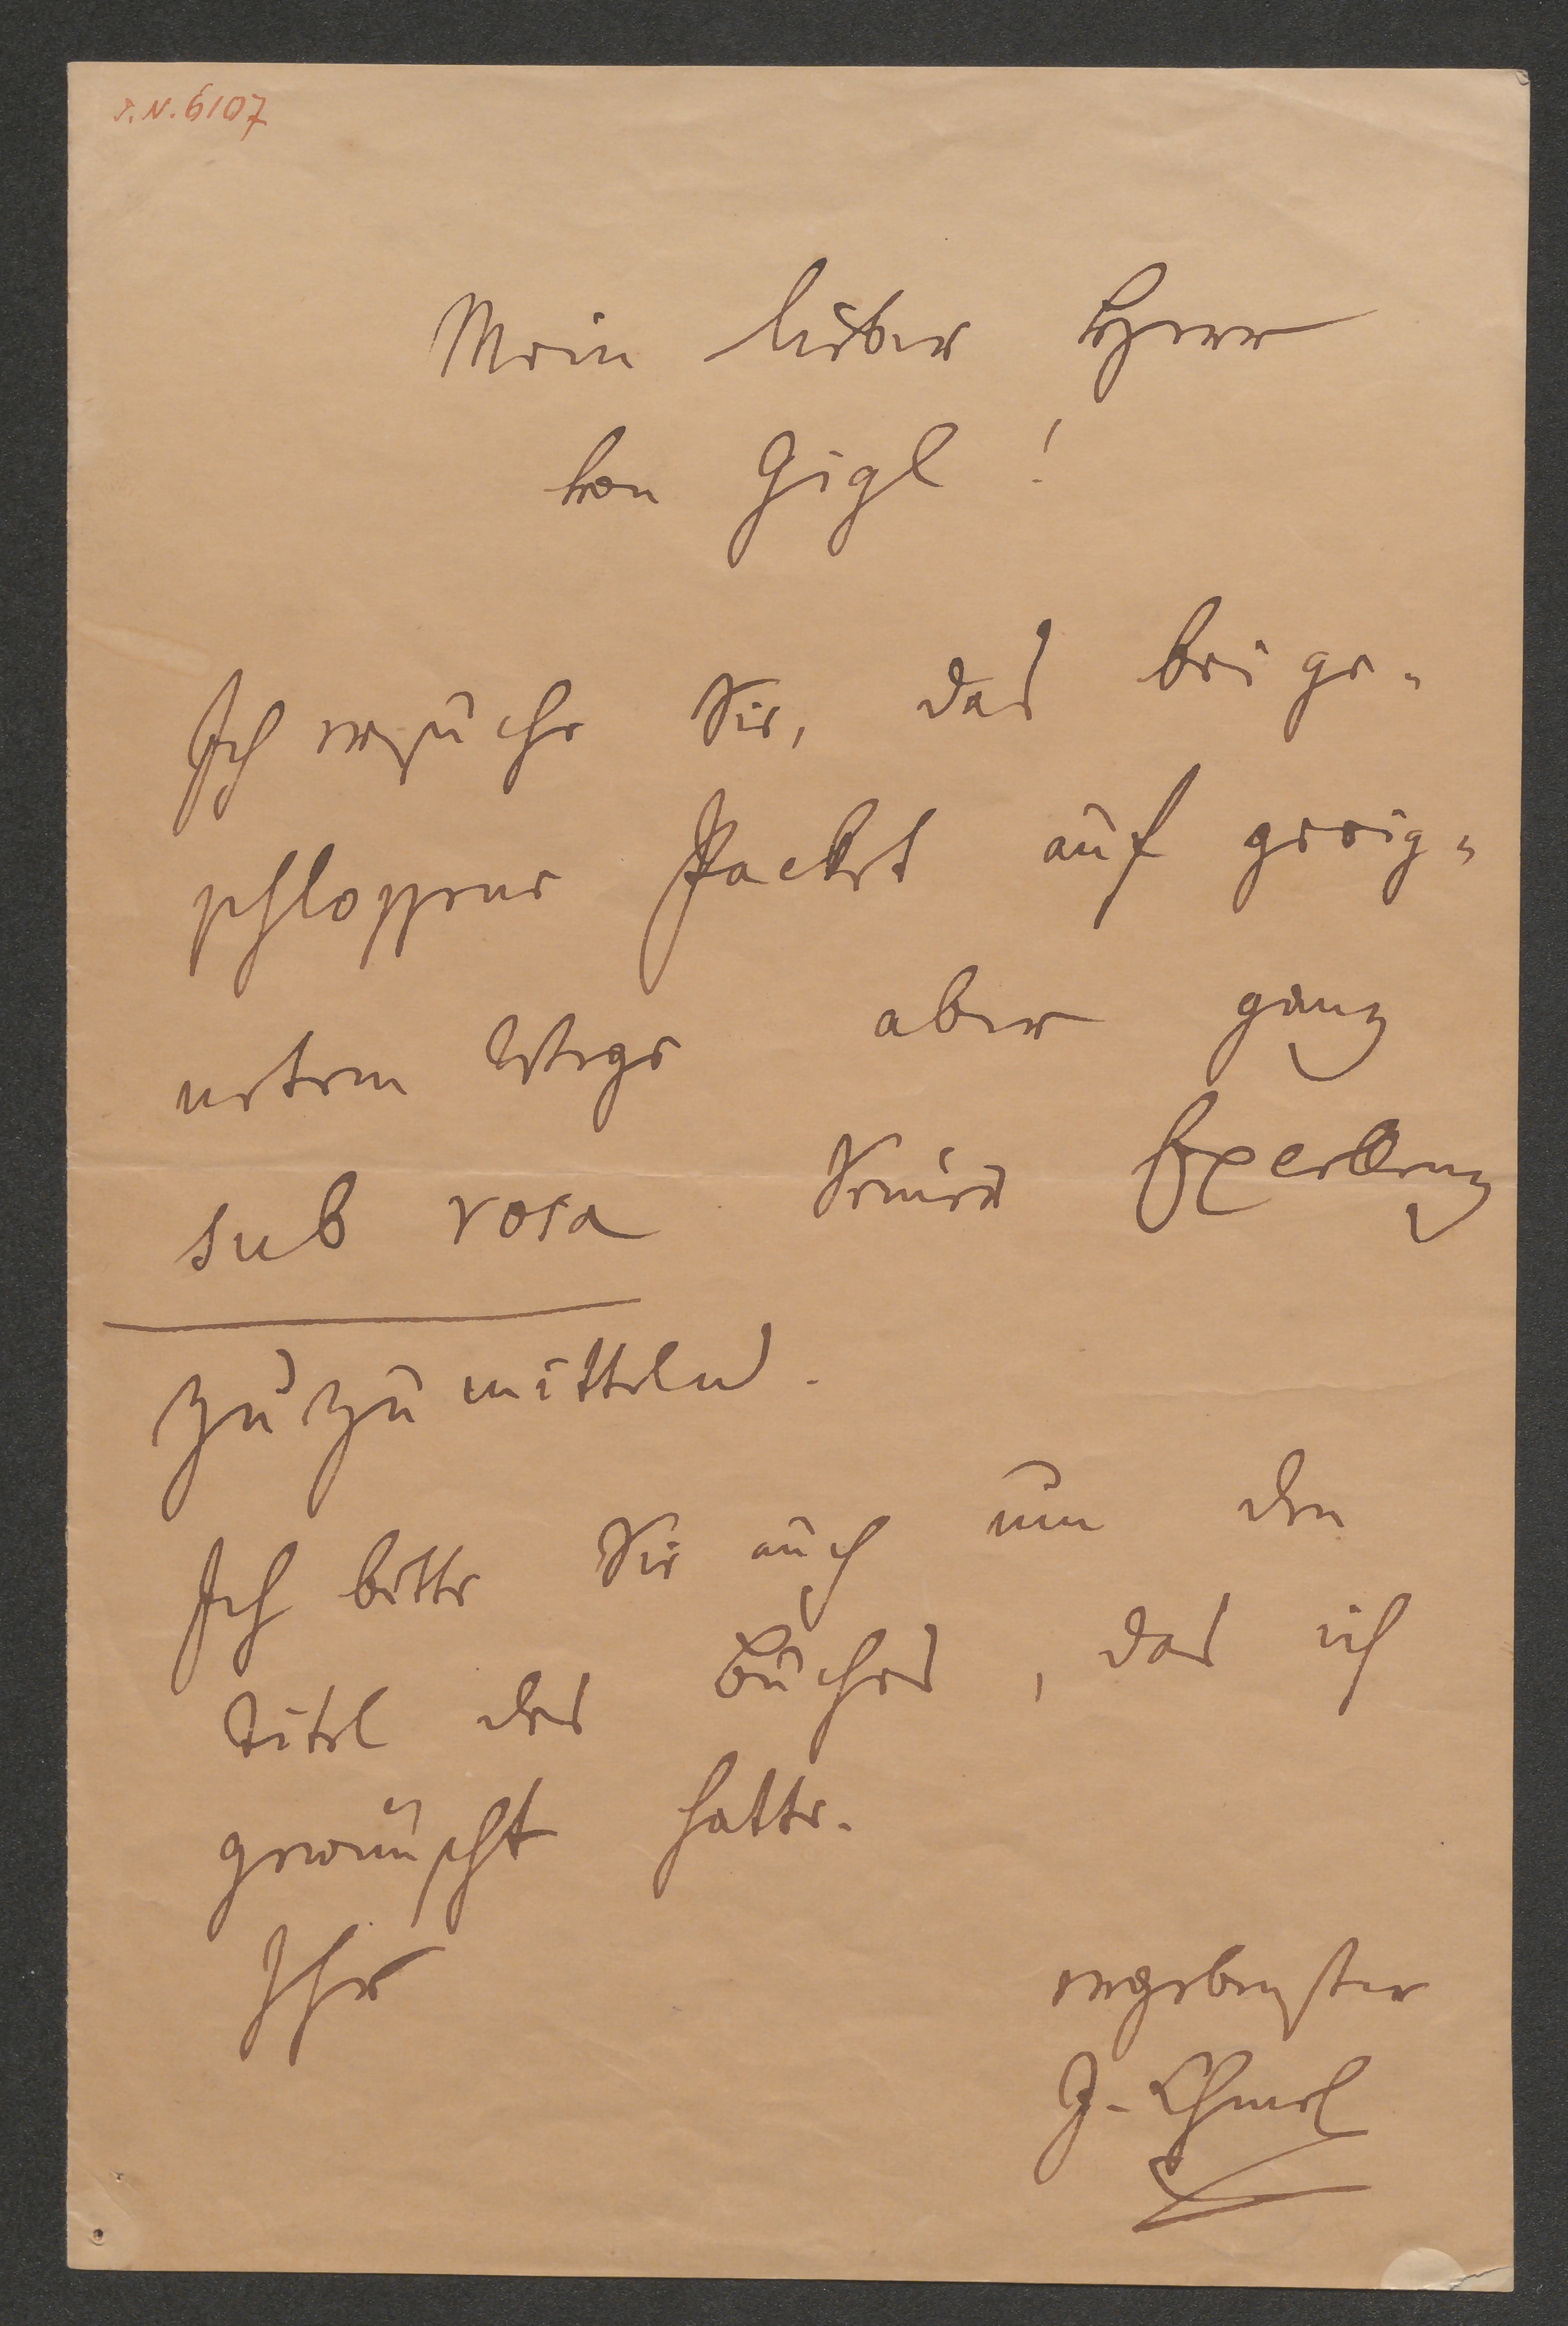 I.N. 6107
Mein lieber Herr
von Gigl!
Ich ersuche Sie, das beige-
schlossene Packet auf geeig-
netem Wege aber ganz
sub rosa Seiner Excellenz
zuzumitteln.
Ich bitte Sie auch um den
Titel des Buches, das ich
gewünscht hatte.
Ihr
ergebenster
J. Chmel